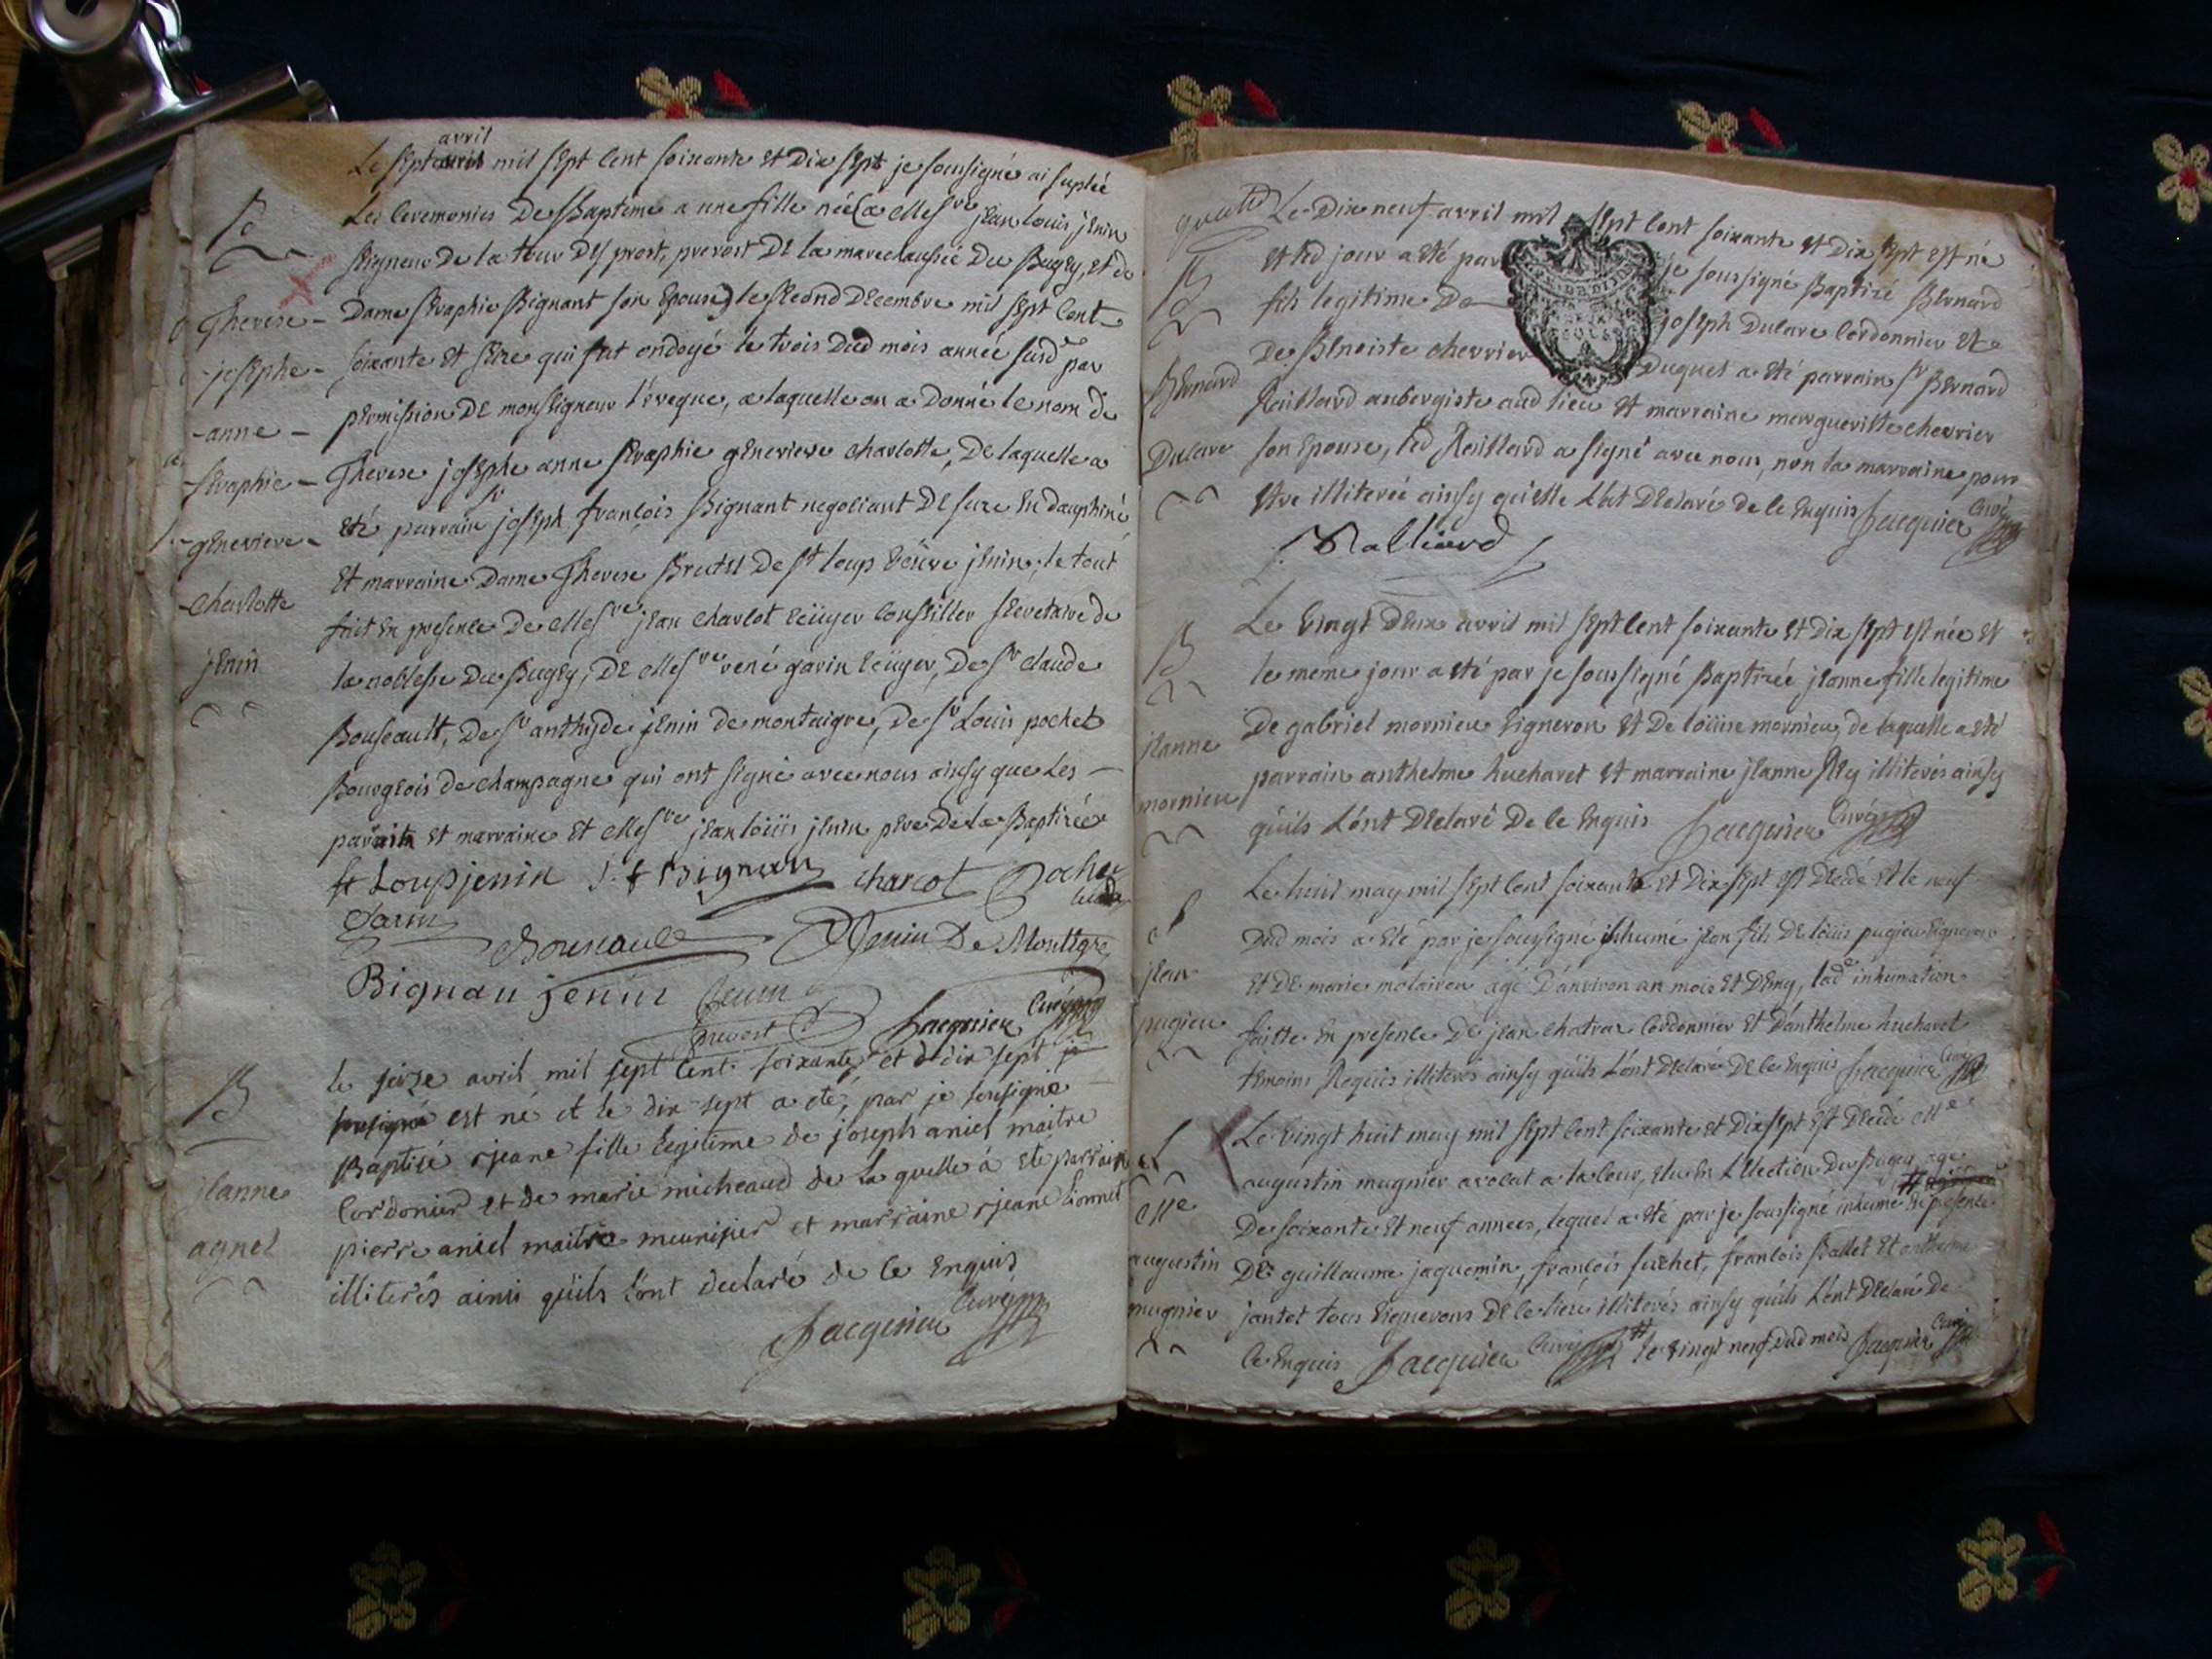 avril
Le sept avril mil sept cent soixante et dix sept je soussigné ai suplée
B
Les ceremonies de Bapteme a une fille née (a messre jean louis jenin
seigneur de la tour des prost, prevost de la marechaussée du Bugey, et de
Therese - Dame seraphie Bignant son epouse) le second decembre mil sept cent
josephe - soixante et seize qui fut ondoyé le trois dud mois année susde par
- anne - permission de monseigneur l'éveque, a laquelle on a donné le nom de
seraphie - Therese josephe anne seraphie genevieve charlotte, de laquelle a
genevieve - eté parrain sr joseph françois Bignant negotiant de suze en dauphiné
et marraine Dame Therese Brutel de st loup veüve jenin; le tout
charlotte
fait en presence de messre jean charlot ecüyer conseiller secretaire de
jenin
la noblesse du Bugey, de messre rené garin ecüyer, de sr claude
Bouseault, de sr anthyde jenin de montaigre, de sr Louis pochet
Bourgeois de champagne qui ont signé avec nous ainsy que les
parain et marraine et messre jean loüis jenin pere de la Baptizée
st Loup jenin J. f Bignan charcot Pochet
Garin
Bouseault Jenin De Montegre
Bignan jenin Jenin
prevost Jacquier Curé
B
le seize avril mil sept cent soixante et dix sept je
soussigné est né et le dix sept a eté, par je sousigné
Baptisé jeane fille legitime de joseph aniel maitre
jeanne
Cordonier et de marie micheaud de la quelle à eté parrain
agnel
pierre aniel maitre meunijer et marraine jeane Lionnet
illiterés ainsi qu'ils l'ont declaré de ce enquis
Jacquier Curé
quatte
Le Dix neuf avril mil sept cent soixante et dix sept est né
B
et led jour a eté par je soussigné Baptizé Bernard
fils legitime de joseph dulare cordonnier et
Bernard
de Benoiste chevrier Duquel a eté parrain sr Bernard
Railliard aubergiste aud lieu et marraine margueritte chevrier
Dulare
son epouse, led Railliard a signé avec nous, non la marraine pour
etre illiterée ainsy qu'elle l'at declaré de ce enquis Jacquier Curé
Ralliard
Le vingt deux avril mil sept cent soixante et dix sept est née et
B
le meme jour a eté par je soussigné Baptizée jeanne fille legitime
jeanne
de gabriel mornieu vigneron et de loüise mornieu, de laquelle a eté
mornieu
parrain anthelme hucharet et marraine jeanne Rey illiterés ainsy
qu'ils l'ont declaré de ce enquis Jacquier Curé
Le huit may mil sept cent soixante et dix sept est decédé et le neuf
dud mois a eté par je soussigné inhumé jean fils de loüis pugieu vigneron
jean
et de marie molairon agé d'anviron an mois et demy, lade inhumation
pugieu
faitte en presence de jean chatrar cordonnier et d'anthelme hucharet
temoins Requis illiterés ainsy qu'ils l'ont declaré de ce enquis Jacquier Curé
Le vingt huit may mil sept cent soixante et dix sept est decédé mre
augustin mugnier avocat a la cour, elu en l'election du Bugey agé
mre
de soixante et neuf annees, lequel a eté par je soussigné inhumé en presence
augustin
de guillaume jaquemin, françois fuchet, françois Ballet et anthelme
mugnier
jantet tous vignerons de ce lieu illiterés ainsy qu'ils l'ont declaré de
ce enquis Jacquier Curé # le vingt neuf dud mois Jacquier Curé